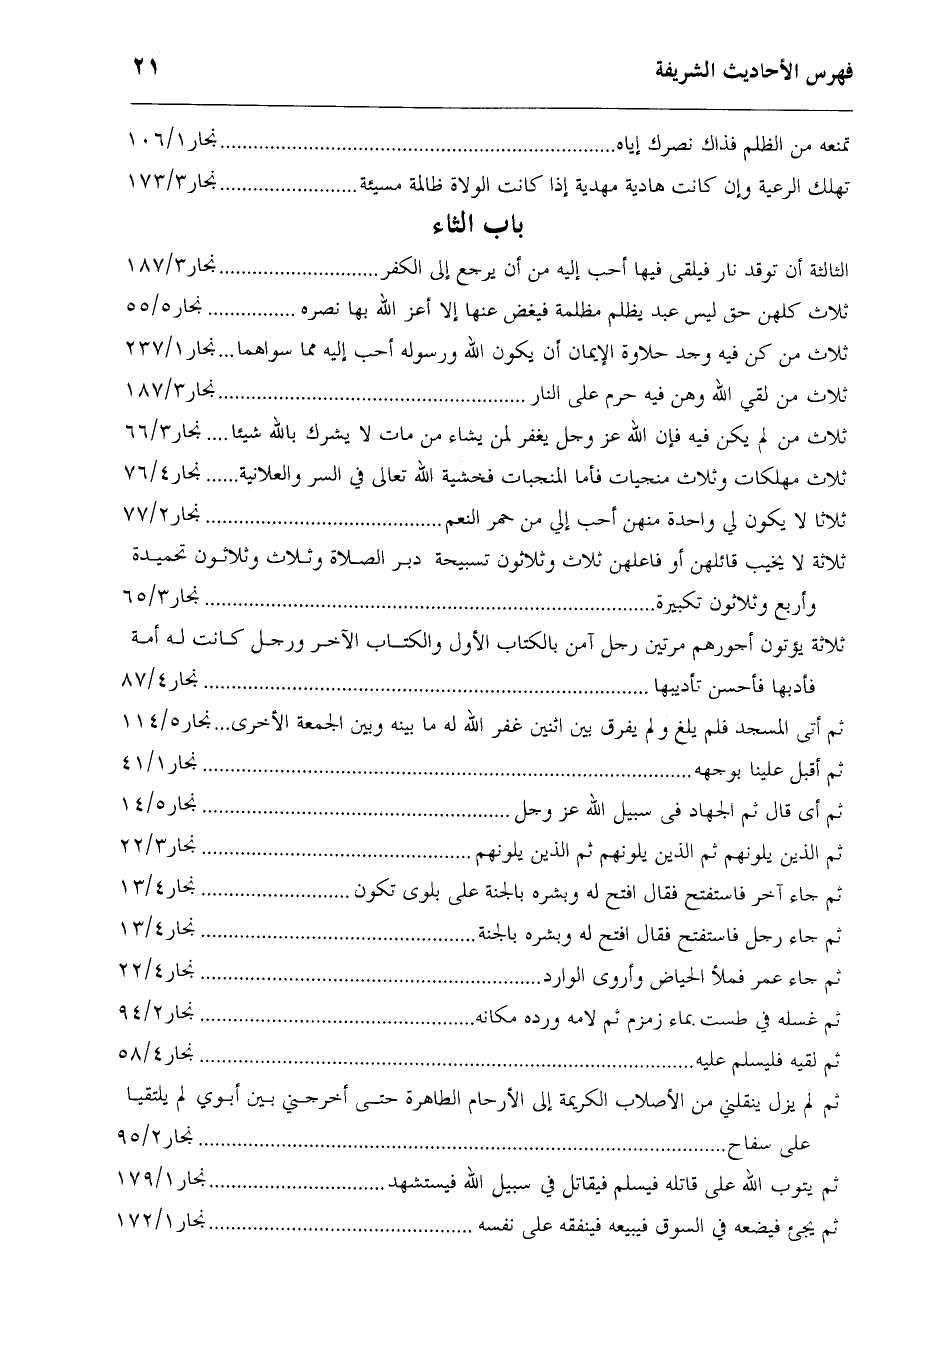 فهرس الأحاديث الشريفة ٢١
تمنعه من الظلم فذاك نصرك إياه........نجار١٠٦/١
تهلك الرعية وإن كانت هادية مهدية إذا كانت الولاة ظالمة مسيئة........نجار١٧٣/٣
باب الثاء
الثالثة أن توقد نار فيلقى فيها أحب إليه من أن يرجع إلى الكفر........نجار١٨٧/٣
ثلاث كلهن حق ليس عبد يظلم مظلمة فيغض عنها إلا أعز الله بها نصره ........ نجار٥٥/٥
ثلاث من كن فيه وجد حلاوة الإيمان أن يكون الله ورسوله أحب إليه مما سواهما...نجار٢٣٧/١
ثلاث من لقي الله وهن فيه حرم على النار ........نجار١٨٧/٣
ثلاث من لم يكن فيه فإن الله عز وجل يغفر لمن يشاء من مات لا يشرك بالله شيئا....نجار٦٦/٣
ثلاث مهلكات وثلاث منجيات فأما المنجيات فخشية الله تعالى في السر والعلانية......نجار٧٦/٤
ثلاثا لا يكون لي واحدة منهن أحب إلي من حمر النعم........نجار٧٧/٢
ثلاثة لا يخيب قائلهن أو فاعلهن ثلاث وثلاثون تسبيحة دبر الصلاة وثلاث وثلاثون تحميدة
وأربع وثلاثون تكبيرة........نجار٦٥/٣
ثلاثة يؤتون أجورهم مرتين رجل آمن بالكتاب الأول والكتاب الآخر ورجل كانت له أمة
فأدبها فأحسن تأديبها ........نجار٨٧/٤
ثم أتى المسجد فلم يلغ ولم يفرق بين اثنين غفر الله له ما بينه وبين الجمعة الأخرى...نجار١١٤/٥
ثم أقبل علينا بوجهه........نجار٤١/١
ثم أى قال ثم الجهاد فى سبيل الله عز وجل........نجار١٤/٥
ثم الذين يلونهم ثم الذين يلونهم ثم الذين يلونهم ........نجار٢٢/٣
ثم جاء آخر فاستفتح فقال افتح له وبشره بالجنة على بلوى تكون ........نجار١٣/٤
ثم جاء رجل فاستفتح فقال افتح له وبشره بالجنة........نجار١٣/٤
ثم جاء عمر فملأ الحياض وأروى الوارد........نجار٢٢/٤
ثم غسله في طست بماء زمزم ثم لامه ورده مكانه........نجار٩٤/٢
ثم لقيه فليسلم عليه ........نجار٥٨/٤
ثم لم يزل ينقلني من الأصلاب الكريمة إلى الأرحام الطاهرة حتى أخرجني بين أبوي لم يلتقيا
على سفاح........نجار٩٥/٢
ثم يتوب الله على قاتله فيسلم فيقاتل في سبيل الله فيستشهد........نجار١٧٩/١
ثم يجئ فيضعه في السوق فيبيعه فينفقه على نفسه ........نجار١٧٢/١